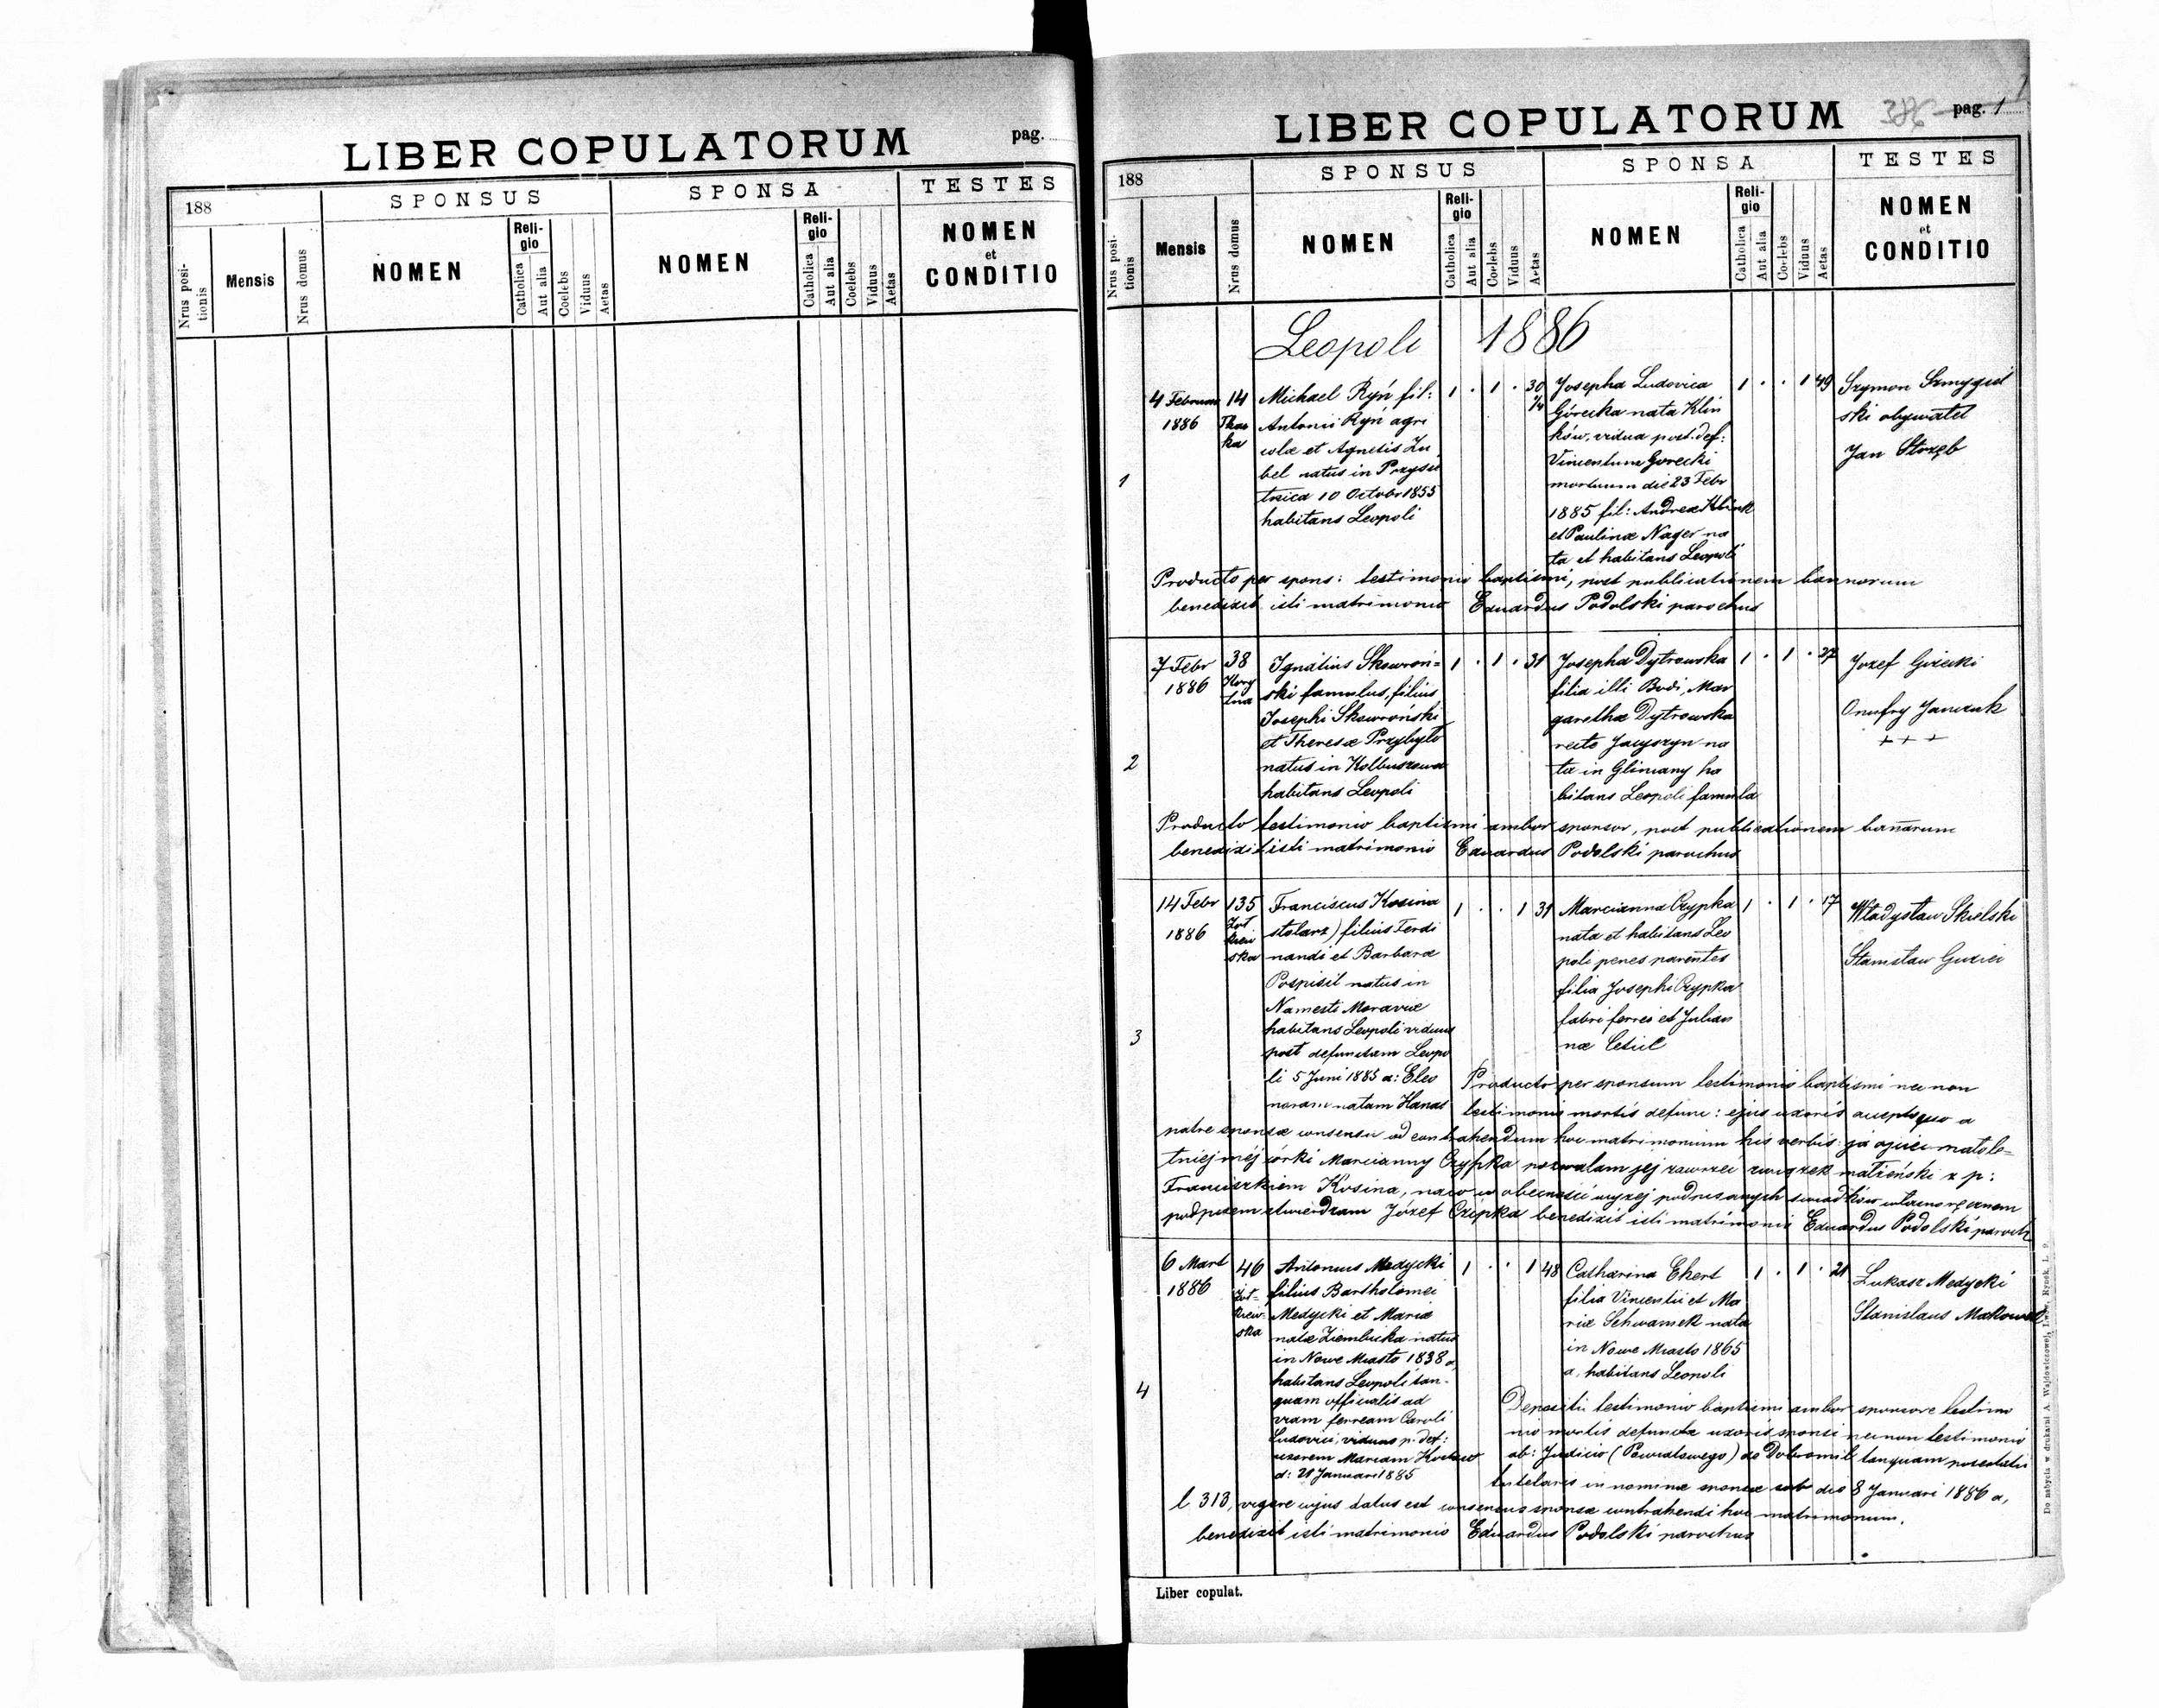 LIBER COPULATORUM
pag.
188
SPONSUS
SPONSA
TESTES
Nrus positionis
Mensis
Nrus domus
NOMEN
Religio
Catholica
Aut alia
Coelebs
Viduus
Aetas
NOMEN
Religio
Catholica
Aut alia
Coelebs
Viduus
Aetas
NOMEN
et
CONDITIO
LIBER COPULATORUM
386
pag. 1
188
SPONSUS
SPONSA
TESTES
Nrus positionis
Mensis
Nrus domus
NOMEN
Religio
Catholica
Aut alia
Coelebs
Viduus
Aetas
NOMEN
Religio
Catholica
Aut alia
Coelebs
Viduus
Aetas
NOMEN
et
CONDITIO
Leopoli 1886
1
4 Februar
1886
14
Michael Ryń fil:
Antonii Ryń agri
colæ et Agnetis Zu
bel natus in
10 Octobr 1855
habitans Leopoli
1 . 1 . 30 1/4
Josepha Ludovica
Górecka nata Klin
ków, vidua post def:
Vincentium Gorecki
mortuum die 23 Febr
1885 fil: Andreæ
et Paulinæ Nager na
ta et habitans Leopoli
1 . . 1 49
Szymon
ski obywatel
Jan Strzęb
Producto per spons: testimonio baptismi, post publicationem bannorum
benedixit isti matrimonio Eduardus Podolski parochus
2
7 Febr
1886
38
Ignatius Skowroń=
ski famulus, filius
Josephi Skowroński
et Theresæ Przybyło
natus in Kolbuszowa
habitans Leopoli
1 . 1 . 31
Josepha Dytrowska
filia illi Bodi, Mar
garethæ Dytrowska
recte Jacyszyn na
ta in Gliniany ha
bitans Leopoli famula
1 . 1 . 27
Jozef Gorecki
Onufry Janczuk
+ + +
Producto testimonio baptismi ambor sponsor, post publicationem banarum
benedixit isti matrimonio Eduardus Podolski parochus
3
14 Febr
1886
135
Żół
kiew
ska
Franciscus Kosina
stolarz) filius Ferdi
nandi et Barbaræ
Pospisil natus in
Namesti Moraviæ
habitans Leopoli viduus
post defunctam Leopo
li 5 Juni 1885 a: Eleo
noram natam Hanas
1 . . 1 31
Marcianna Czypka
nata et habitans Leo
poli penes parentes
filia Josephi Czypka
fabri ferrei et Julian
næ Cesiel
1 . 1 . 17
Władysław Skielski
Stanisław
Producto per sponsum testimonio baptismi nec non
testimonio mortis defunc: ejus uxoris acceptoque a
patre sponsæ consensu ad contrahendum hoc matrimonium his verbis: ja ojciec małole=
tniej méj córki Marcianny Czypka pozwalam jej zawrzeć związek małżeński z p:
Franciszkiem Kosina, naco w obecności wyżej podpisanych świadków własnoręcznem
podpisem stwierdzam Józef Czipka benedixit isti matrimonio Eduardus Podolski paroch
4
6 Mart
1886
46
Żół=
kiew=
ska
Antonius Medycki
filius Bartholomei
Medycki et Mariæ
natæ Ziembicka natus
in Nowe Miasto 1838 a,
habitans Leopoli tan-
quam officialis ad
viam ferream Caroli
Ludovici, viduus p. def:
uxorem Mariam
d: 21 Januari 1885
1 . . 1 48
Catharina Ekert
filia Vincentii et Ma
riæ Schwamek nata
in Nowe Miasto 1865
a, habitans Leopoli
1 . 1 . 21
Łukasz Medycki
Stanislaus
testimonio baptismi ambor sponsore testimo
nio mortis defunctæ uxoris sponsi nec non testimonio
ab: Judicio (Powiatowego) de Dobromil tanquam potestatis
tutelaris in nominæ sponsæ sub die 8 Januari 1886 a,
l 313, vigore cujus datus est consensus sponsæ contrahendi hoc matrimonium,
benedixit isti matrimonio Eduardus Podolski parochus
Liber copulat.
Do nabycia w drukarni A. Wajdowiczowej, Lwów, Rynek, l. 9.